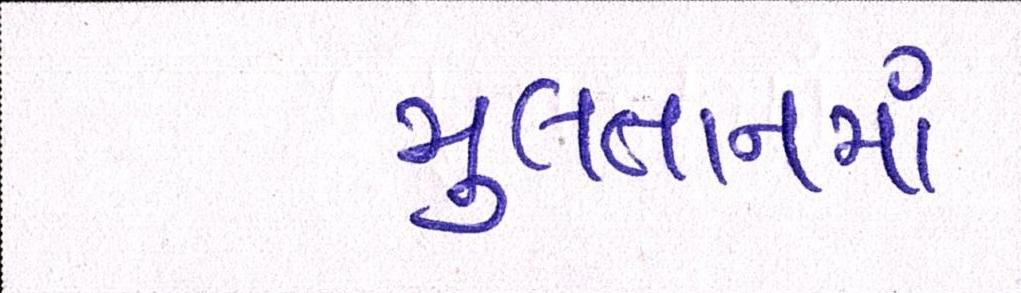 મુલતાનમાં